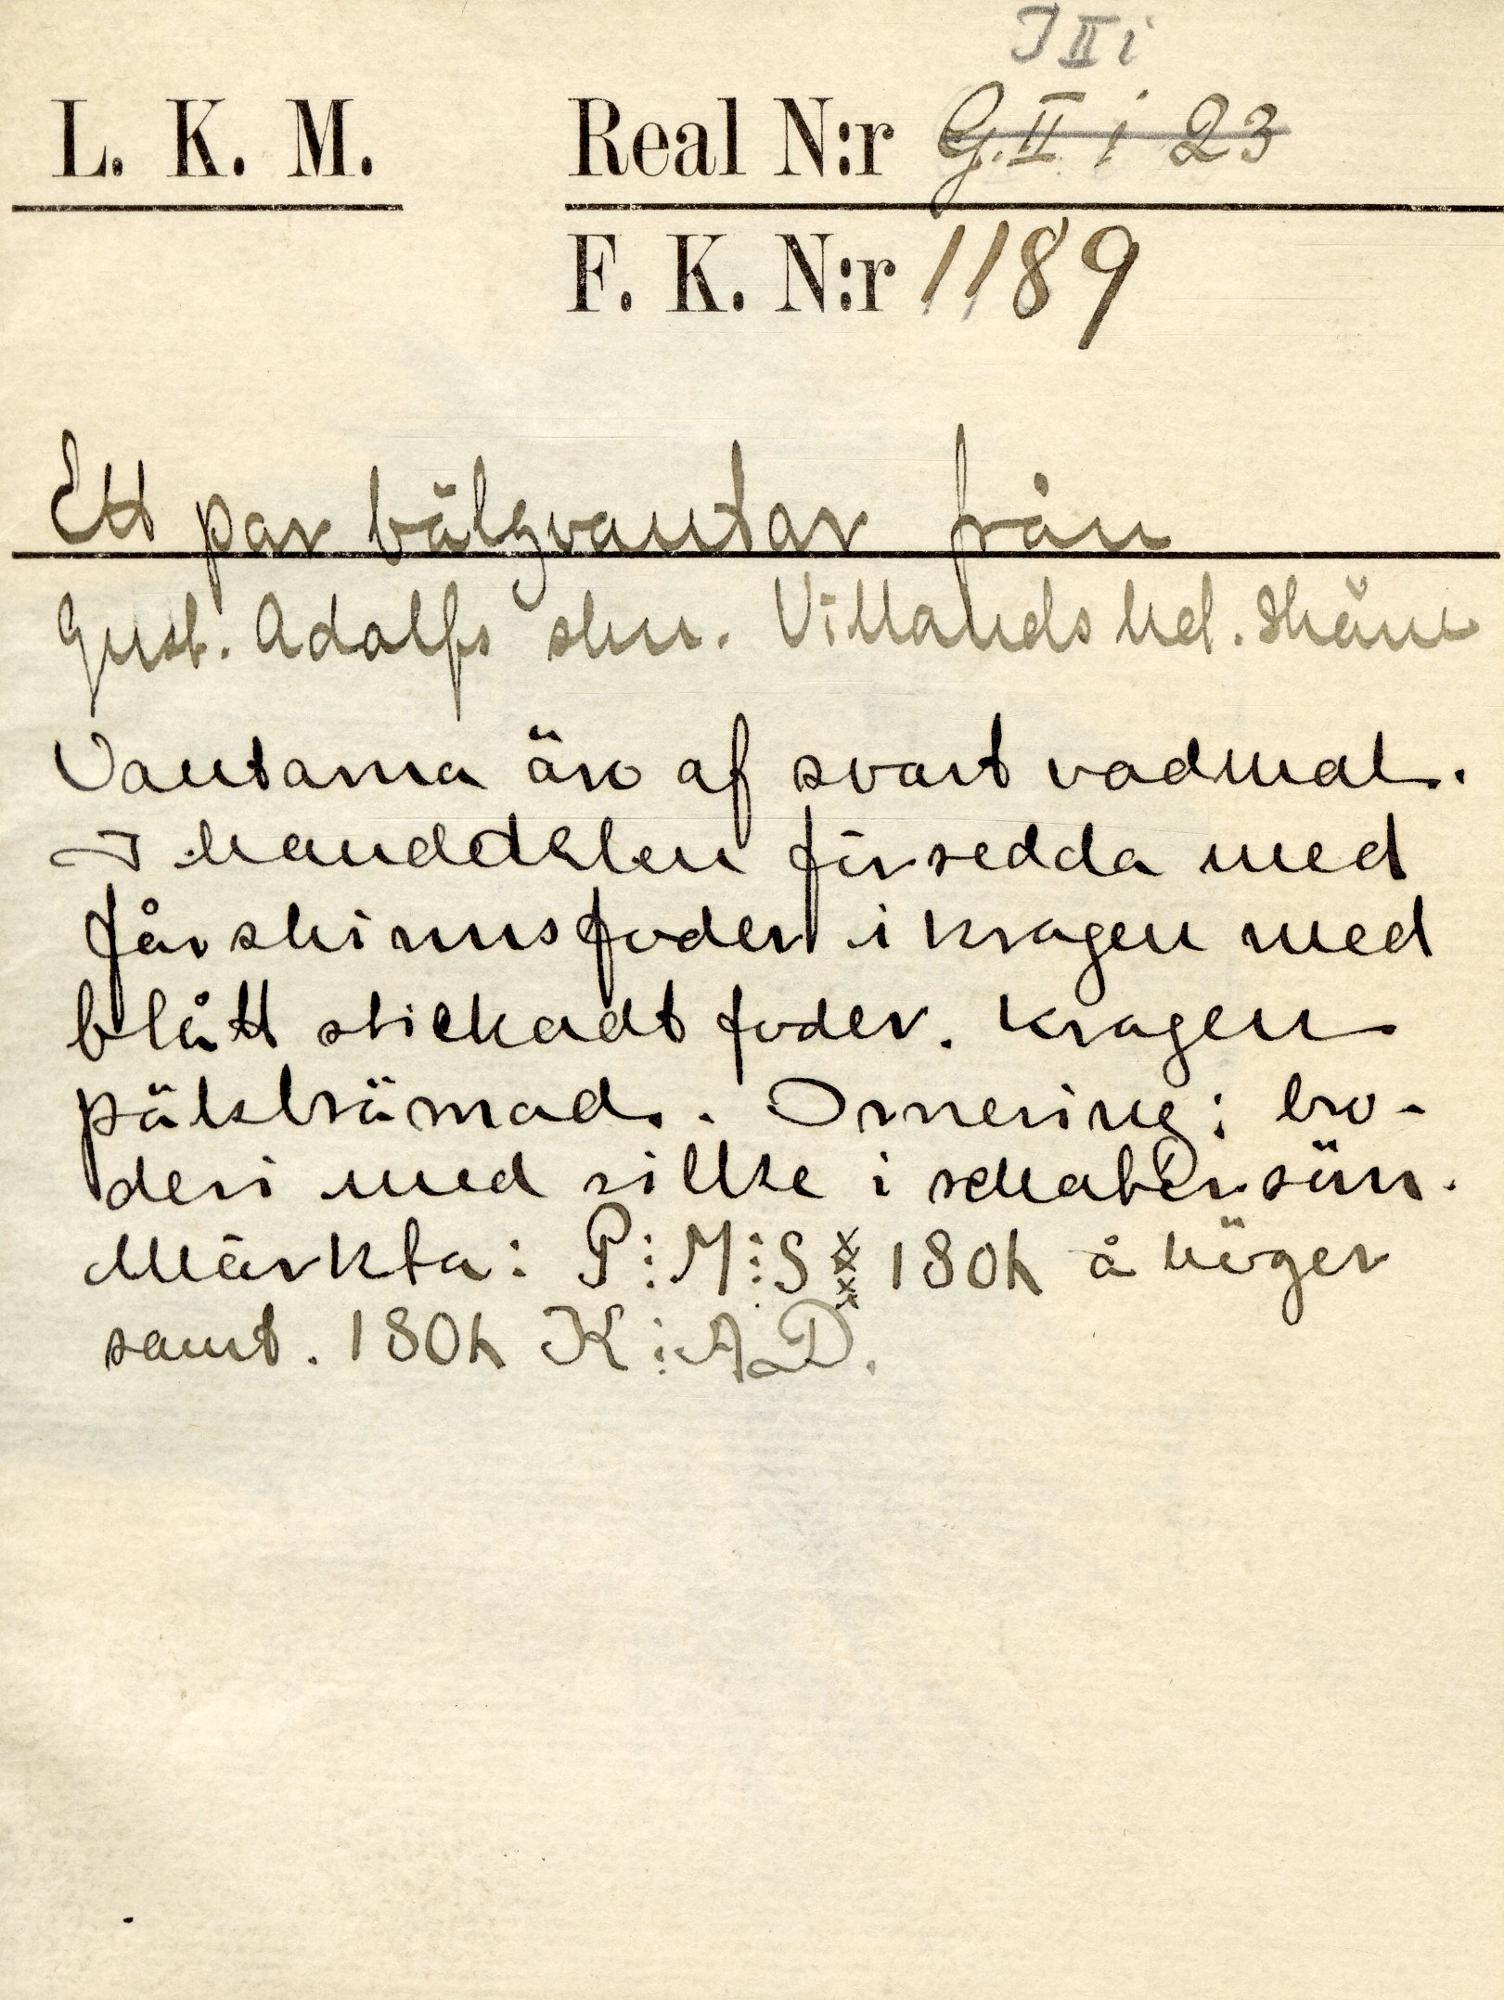 J II i
L. K. M. Real N:r G. II i 23
F. K. N:r 1189
Ett par bälgvantar från
Gust. Adolfs skn. Villands hd. Skåne
Vantarna äro af svart vadmal.
I handdelen försedda med
fårskinnsfoder i kragen med
blått stickadt foder. Kragen
pälsbrämad. Ornering: bro-
deri med silke i schattersöm.
Märkta: P:M:S 180h å höger
samt. 180h K:AD.